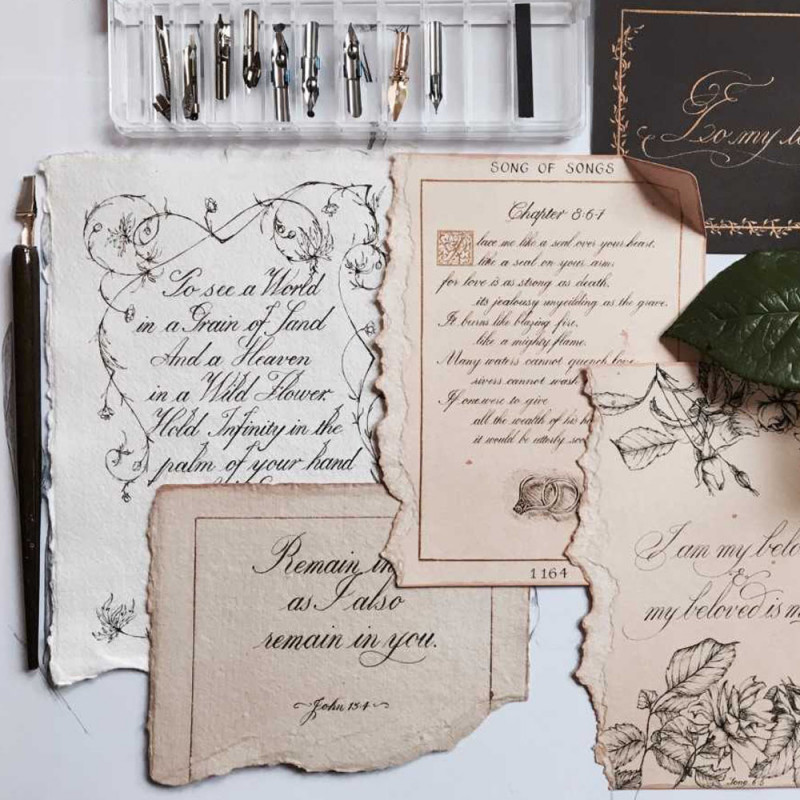 To my
To see a World
in a Grain of Sand
And a Heaven
in a Wild Flower.
Hold Infinity in the
palm of your hand
SONG OF SONGS
Chapter 8:6-7
lace me like a seal over your heart,
like a seal on your arm;
for love is as strong as death,
its jealousy unyielding as the grave.
It burns like blazing fire,
like a mighty flame.
Many waters cannot quench love
rivers cannot wash
If one were to give
all the wealth of his h
it would be utterly sco
1164
Remain in
as I also
remain in you.
~John 15:4~
I am my belo
&
my beloved is m
Song 6:3